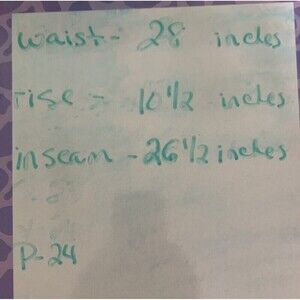 waist - 28 inches
rise - 10 1/2 inches
inseam - 26 1/2 inches
P-24